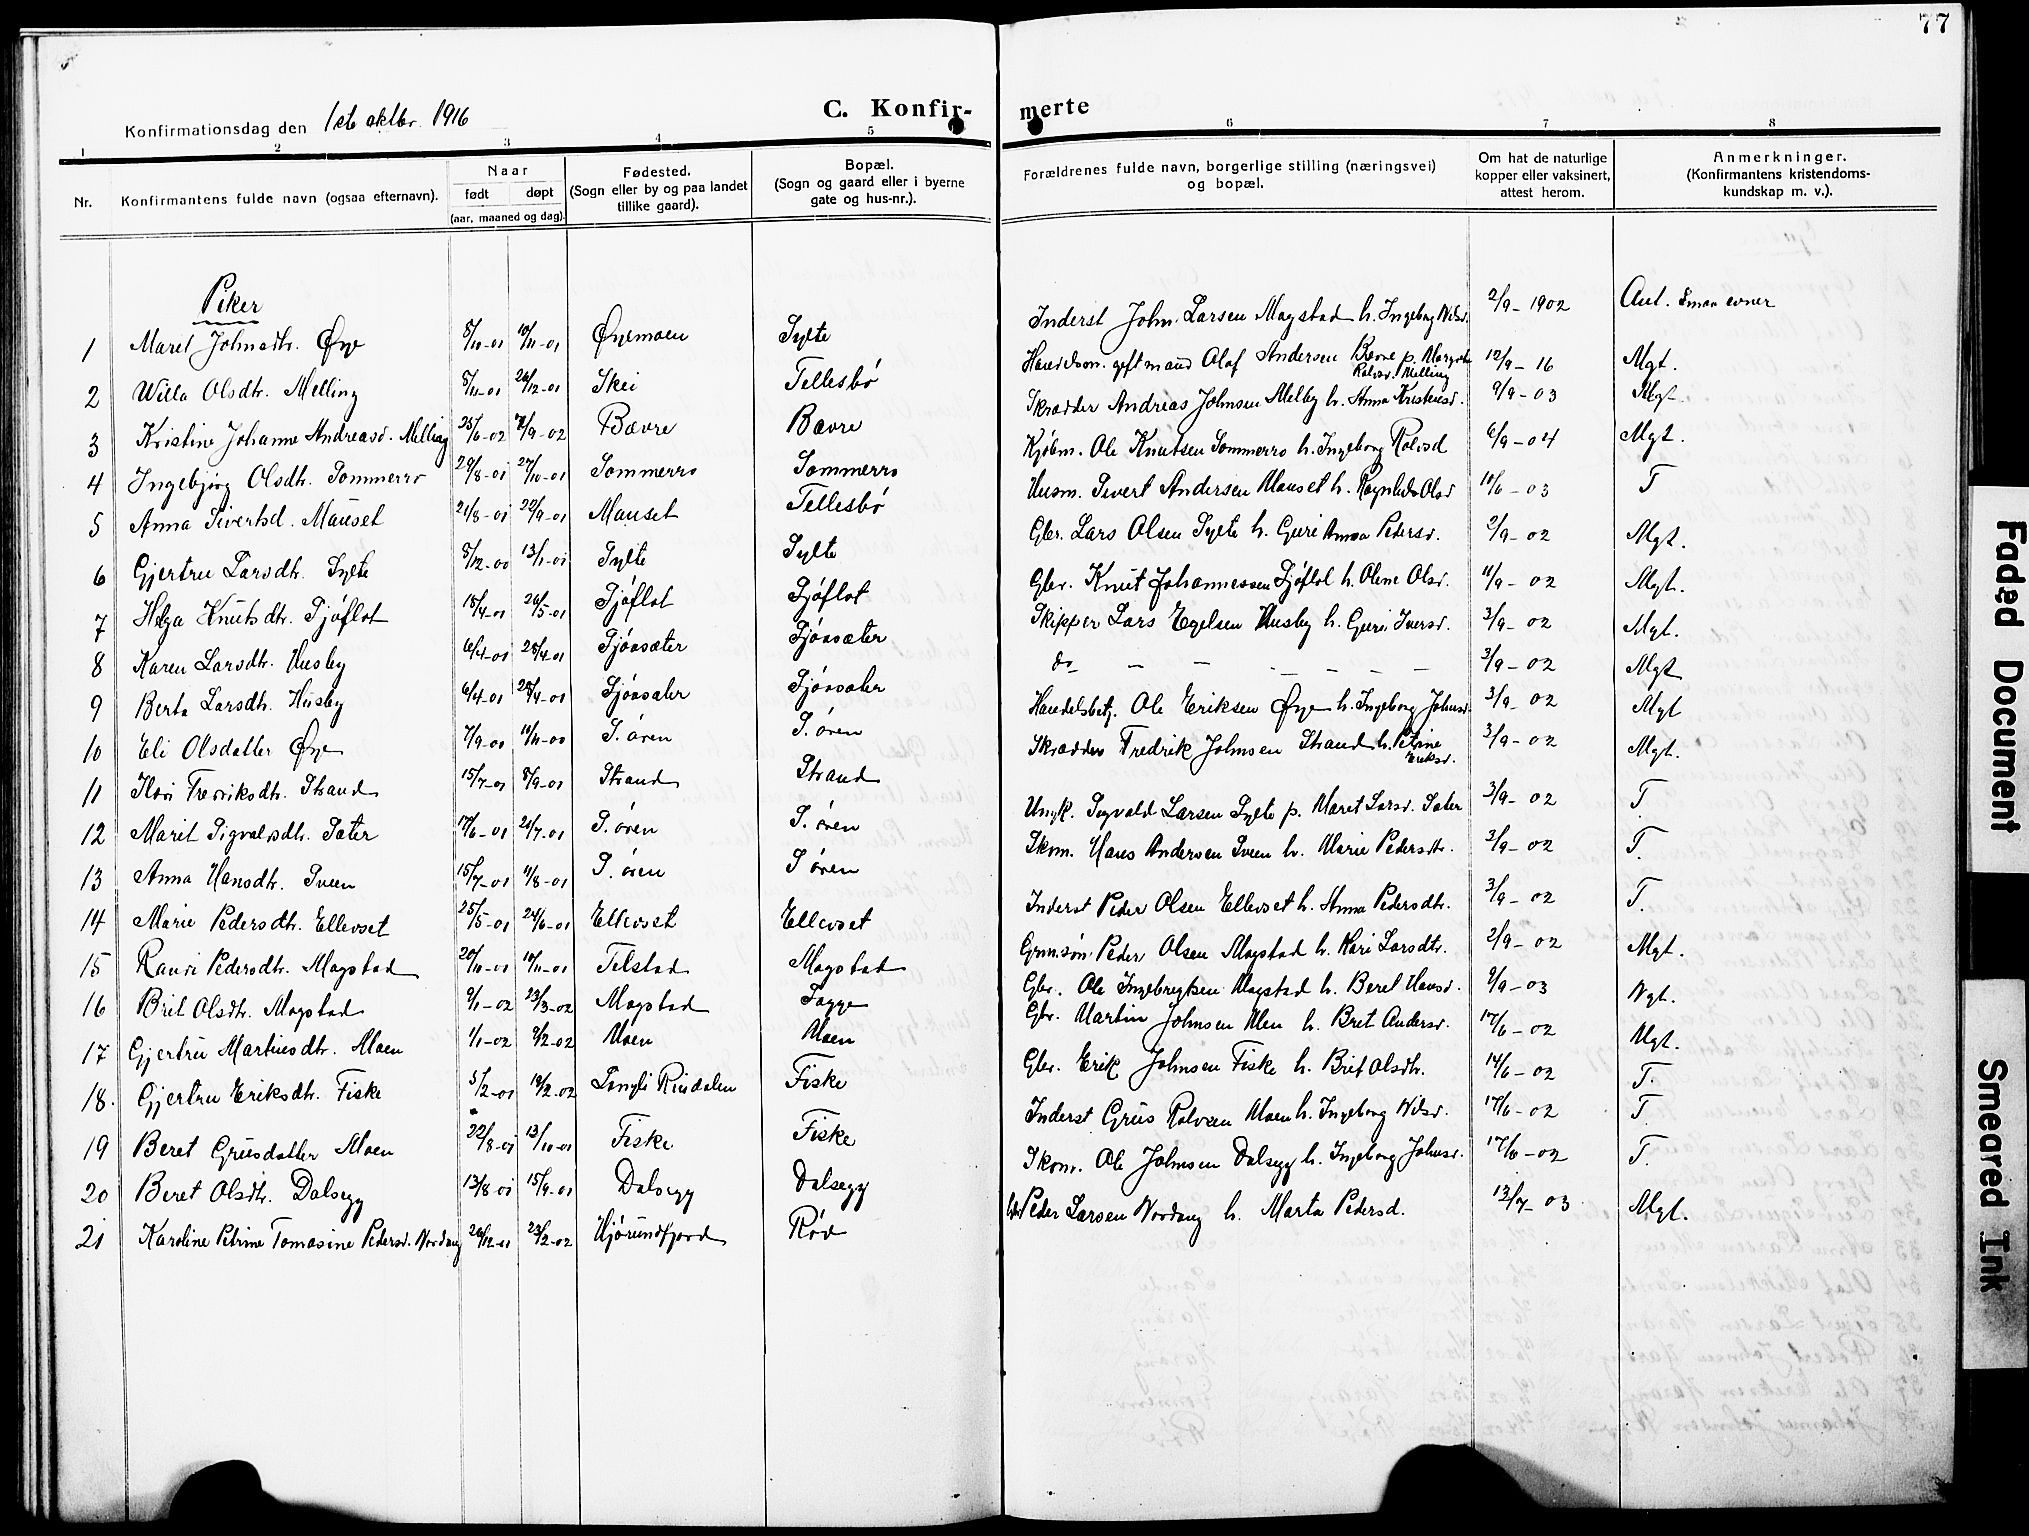 77
Konfirmationsdag den 1ste oktbr. 1916
C. Konfir- merte
1 2 3 4 5 6 7 8
Nr.
Konfirmantens fulde navn (ogsaa efternavn).
Naar
født døpt
(aar, maaned og dag).
Fødested.
(Sogn eller by og paa landet
tillike gaard).
Bopæl.
(Sogn og gaard eller i byerne
gate og hus-nr.).
Forældrenes fulde navn, borgerlige stilling (næringsvei)
og bopæl.
Om hat de naturlige
kopper eller vaksinert,
attest herom.
Anmerkninger.
(Konfirmantens kristendoms-
kundskap m. v.).
Piker
1 Maret Johnsdtr. Øye 8/10-01 10/11-01 Øyemoen Sylte Inderst John Larsen Magstad h. Ingeborg Nilsd. 2/9-1902 Aut. Smaa evner
2 Willa Olsdtr. Melling 8/11-01 26/12-01 Skei Tellesbø gift mand Olaf Andersen Bævre p. Margrete Rolvsd. Melling 12/9-16 Mgt.
3 Kristine Johanne Andreasd. Melling 25/6-02 7/9-02 Bævre Bævre Skrædder Andreas Johnsen Melby h. Anna Kristensd. 9/9-03 Mgt.
4 Ingebjørg Olsdtr. Sommerro 29/8-01 27/10-01 Sommerro Sommerro Kjøbm. Ole Knutsen Sommerro h. Ingeborg Rolvsd 6/9-04 Mgt.
5 Anna Sivertsd. Mauset 21/8-01 22/9-01 Mauset Tellesbø Husm. Sivert Andersen Mauset h. Ragnhild Olsd 10/6-03 T
6 Gjertru Larsdtr. Sylte 8/12-00 13/1-01 Sylte Sylte Gbr. Lars Olsen Sylte h. Guri Anna Pedersd. 2/9-02 Mgt.
7 Helga Knutsdtr. Sjøflot 18/4-01 26/5-01 Sjøflot Sjøflot Gbr. Knut Johannessen Sjøflot h. Oline Olsd. 11/9-02 Mgt.
8 Karen Larsdtr. Husby 6/4-01 28/4-01 Sjøasæter Sjøasæter Skipper Lars Egelsen Husby h. Guri Iversd. 3/9-02 Mgt.
9 Berta Larsdtr. Husby 6/4-01 28/4-01 Sjøasæter Sjøasæter do - - - - - - 3/9-02 Mgt
10 Eli Olsdatter Øye 7/9-01 10/11-00 S. øren S. øren Handelsbetj. Ole Eriksen Øye h. Ingeborg Johnsd. 3/9-02 Mgt
11 Fredriksdtr. Strand 15/7-01 8/9-01 Strand Strand Skrædder Fredrik Johnsen Strand h. Petrine Eriksd. 3/9-02 Mgt.
12 Marit Sigvaldsdtr. Sæter 17/6-01 21/7-01 S. øren S. øren Ungk. Sigvald Larsen Sylte p. Maret Larsd. Sæter 3/9-02 T.
13 Anna Hansdtr. Sveen 15/7-01 11/8-01 S. øren S øren Skom. Hans Andersen Sveen h. Marie Pedersdtr. 3/9-02 T.
14 Marie Pedersdtr. Ellevset 25/5-01 24/6-01 Ellevset Ellevset Inderst Peder Olsen Ellevset h. Anna Pedersdtr. 3/9-02 T.
15 Rauri Pedersdtr. Magstad 20/10-01 10/11-01 Telstad Magstad Grmsøn Peder Olsen Magstad h. Kari Larsdtr. 2/9-02 Mgt.
16 Brit Olsdtr. Magstad 9/1-02 23/3-02 Magstad Sagge Gbr. Ole Ingebregtsen Magstad h. Beret Hansd. 9/9-03 Ngt.
17 Gjertru Martinsdtr. Moen 1/1-02 9/2-02 Moen Moen Gbr. Martin Johnsen Moen h. Bret Andersd. 17/6-02 Mgt.
18. Gjertru Eriksdtr. Fiske 5/2-01 19/2-02 Langli Rindalen Fiske Gbr. Erik Johnsen Fiske h. Brit Olsdtr. 14/6-02 T.
19 Beret Gruisdatter Moen 22/8-01 13/10-01 Fiske Fiske Inderst Gruis Rolvsen Moen h. Ingeborg Nilsd. 17/6-02 T.
20 Beret Olsdtr. Dalsegg 13/8-01 15/9-01 Dalsegg Dalsegg Skom. Ole Johnsen Dalsegg h. Ingeborg Johnsd. 17/6-02 T.
21 Karoline Petrine Tomasine Pedersd. Nordang 26/12-01 23/2-02 Hjørundfjord Rød Peder Larsen Nordang h. Marta Pedersd. 13/7-03 Mgt.
Faded Document
Smeared Ink